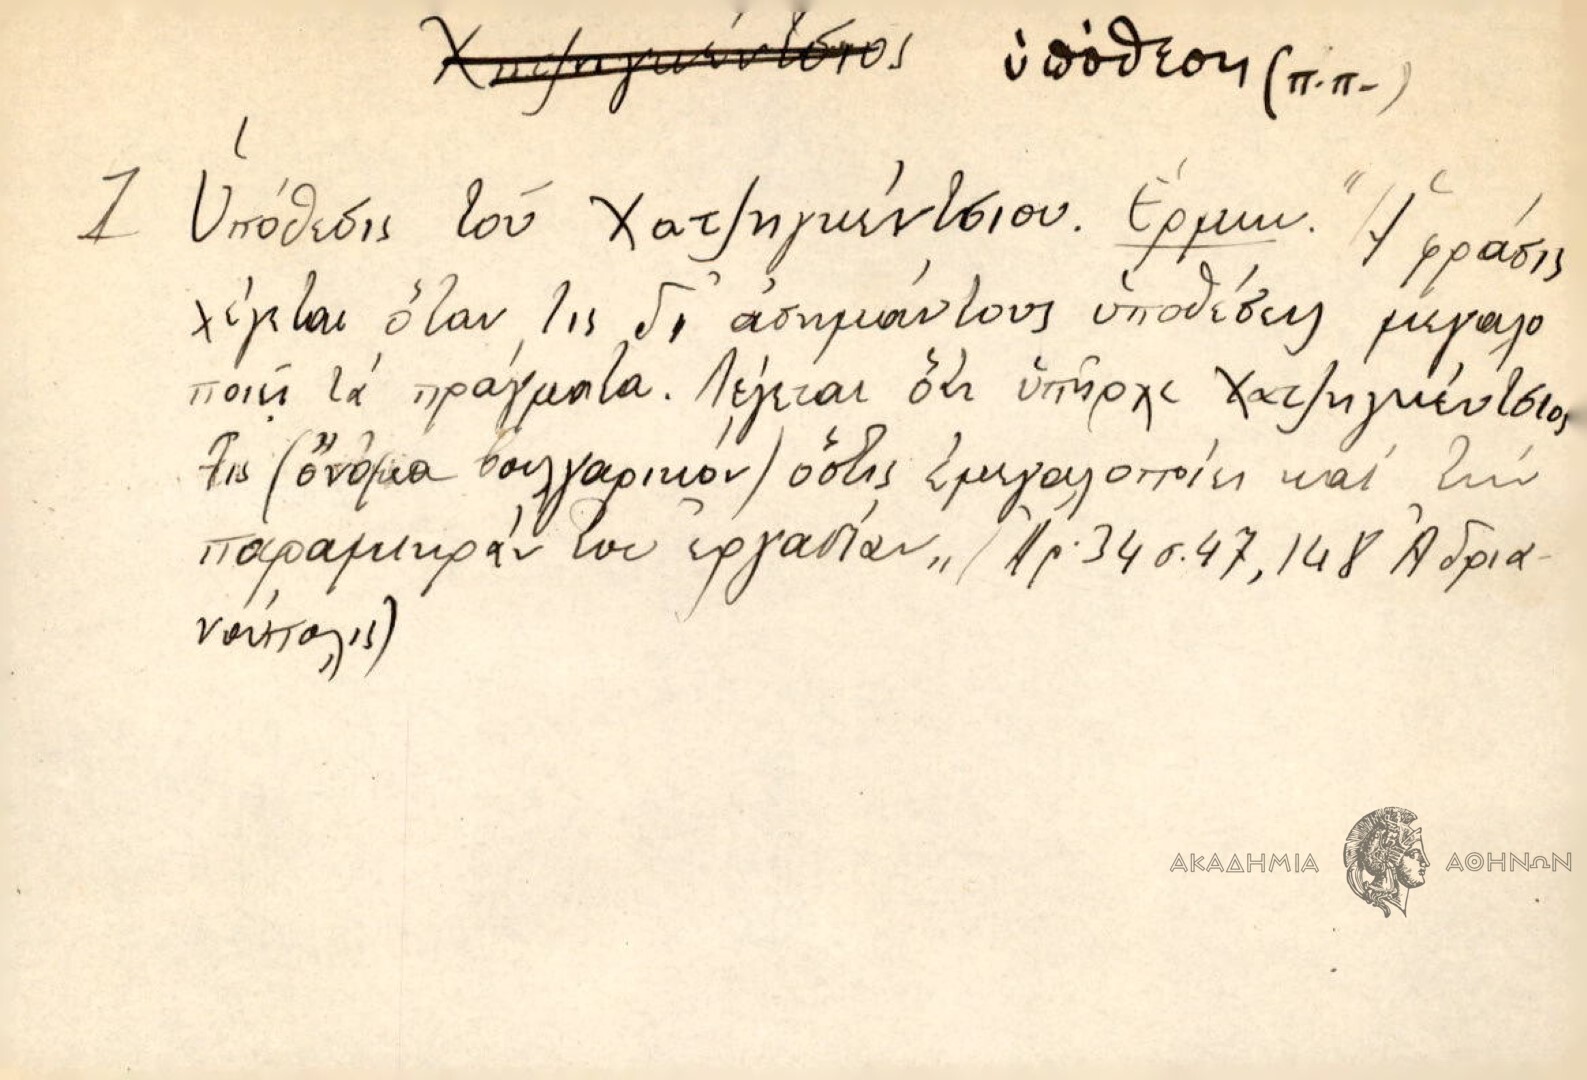 Χατζηγκέντσιος ὑπόθεση (π.π.)
1 Ὑπόθεσις τοῦ Χατζηγκέντσιου. Ἑρμην. "Ἡ φράσις
λέγεται ὅταν τις δι' ἀσημάντους ὑποθέσεις μεγαλο
ποιεῖ τὰ πράγματα. Λέγεται ὅτι ὑπῆρχε Χατζηγκέντσιος
τις (ὄνομα βουλγαρικόν) ὅστις ἐμεγαλοποίει καὶ τὴν
παραμικράν του ἐργασίαν" (Ἀρ. 34 σ. 47, 148 Ἀδρια-
νούπολις)
ΑΚΑΔΗΜΙΑ ΑΘΗΝΩΝ